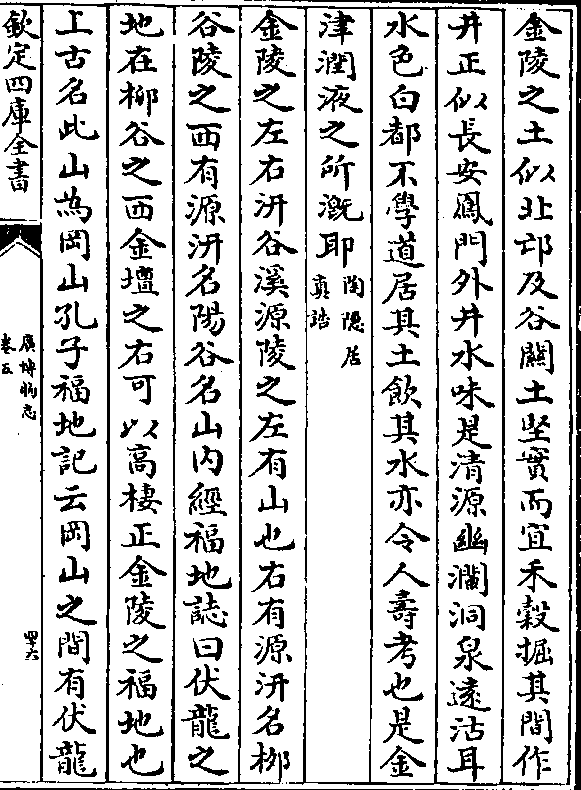 金陵之土似北邙及谷關土堅實而宜禾穀掘其間作
井正似長安鳳門外井水味是清源幽瀾洞泉遠沽耳
水色白都不學道居其土飲其水亦令人壽考也是金
津潤液之所溉耶陶隱居真誥
金陵之左右汧谷溪源陵之左有山也右有源汧名柳
谷陵之西有源汧名陽谷名山內經福地誌曰伏龍之
地在柳谷之西金壇之右可以高棲正金陵之福地也
上古名此山為岡山孔子福地記云岡山之間有伏龍
欽定四庫全書
廣博物志
卷五
四六